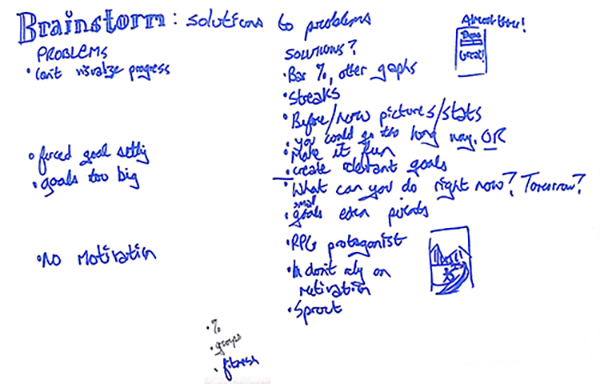 Brainstorm: solutions to problems
PROBLEMS
• Can't visualize progress
• forced goal setting
• goals too big
• No Motivation
SOLUTIONS?
• Bar %, other gaphs
• Streaks
• Before/now pictures/stats
• you could go too long way, OR
• Make it fun
• create relevant goals
• What can you do right now? Tomorrow?
small
• goals earn points
• RPG protagonist
• don't rely on
motivation
• Sprout
Almost there!
Great!
• %
• groups
• fitness